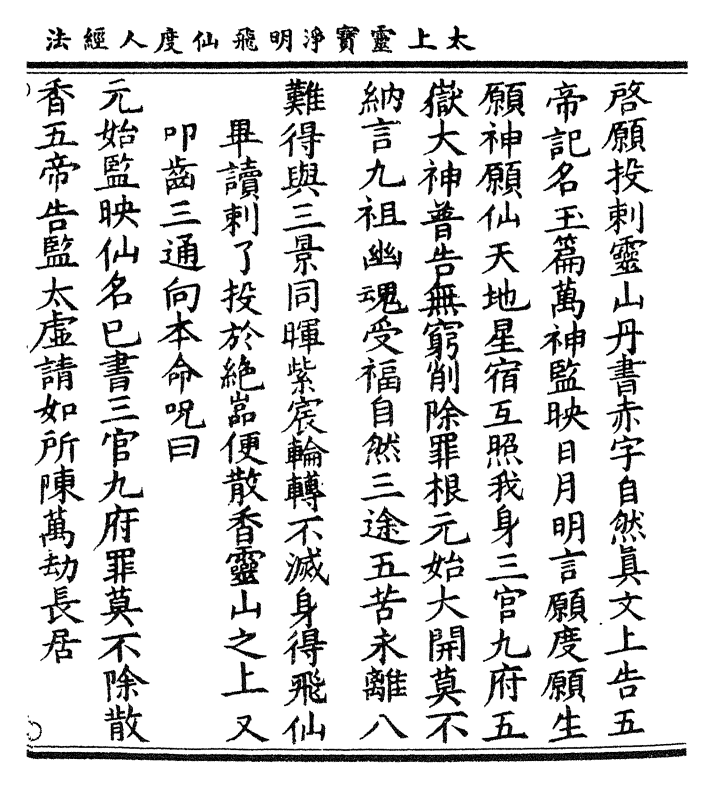 太上靈寶淨明飛仙度人經法
啓願投刺靈山丹書赤字自然眞文上告五
帝記名玉篇萬神監映日月明言願度願生
願神願仙天地星宿互照我身三官九府五
嶽大神普告無窮削除罪根元始大開莫不
納言九祖幽魂受福自然三途五苦永離八
難得與三景同暉紫宸輪轉不滅身得飛仙
畢讀刺了投於絶嵓便散香靈山之上又
叩齒三通向本命呪曰
元始監映仙名已書三官九府罪莫不除散
香五帝告監太虛請如所陳萬劫長居